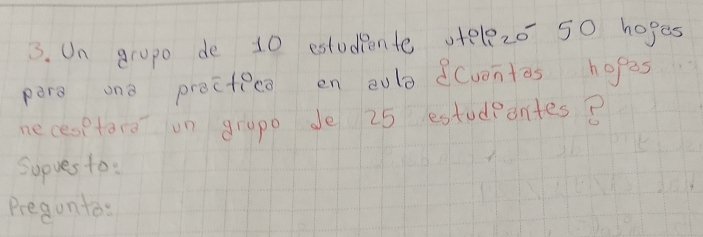 3. Un grupo de 10 estudiente utilizó 50 hojas
para una práctica en aula ¿Cuántas hojas
necesitará un grupo de 25 estudiantes?
Supuesto:
Pregunta: